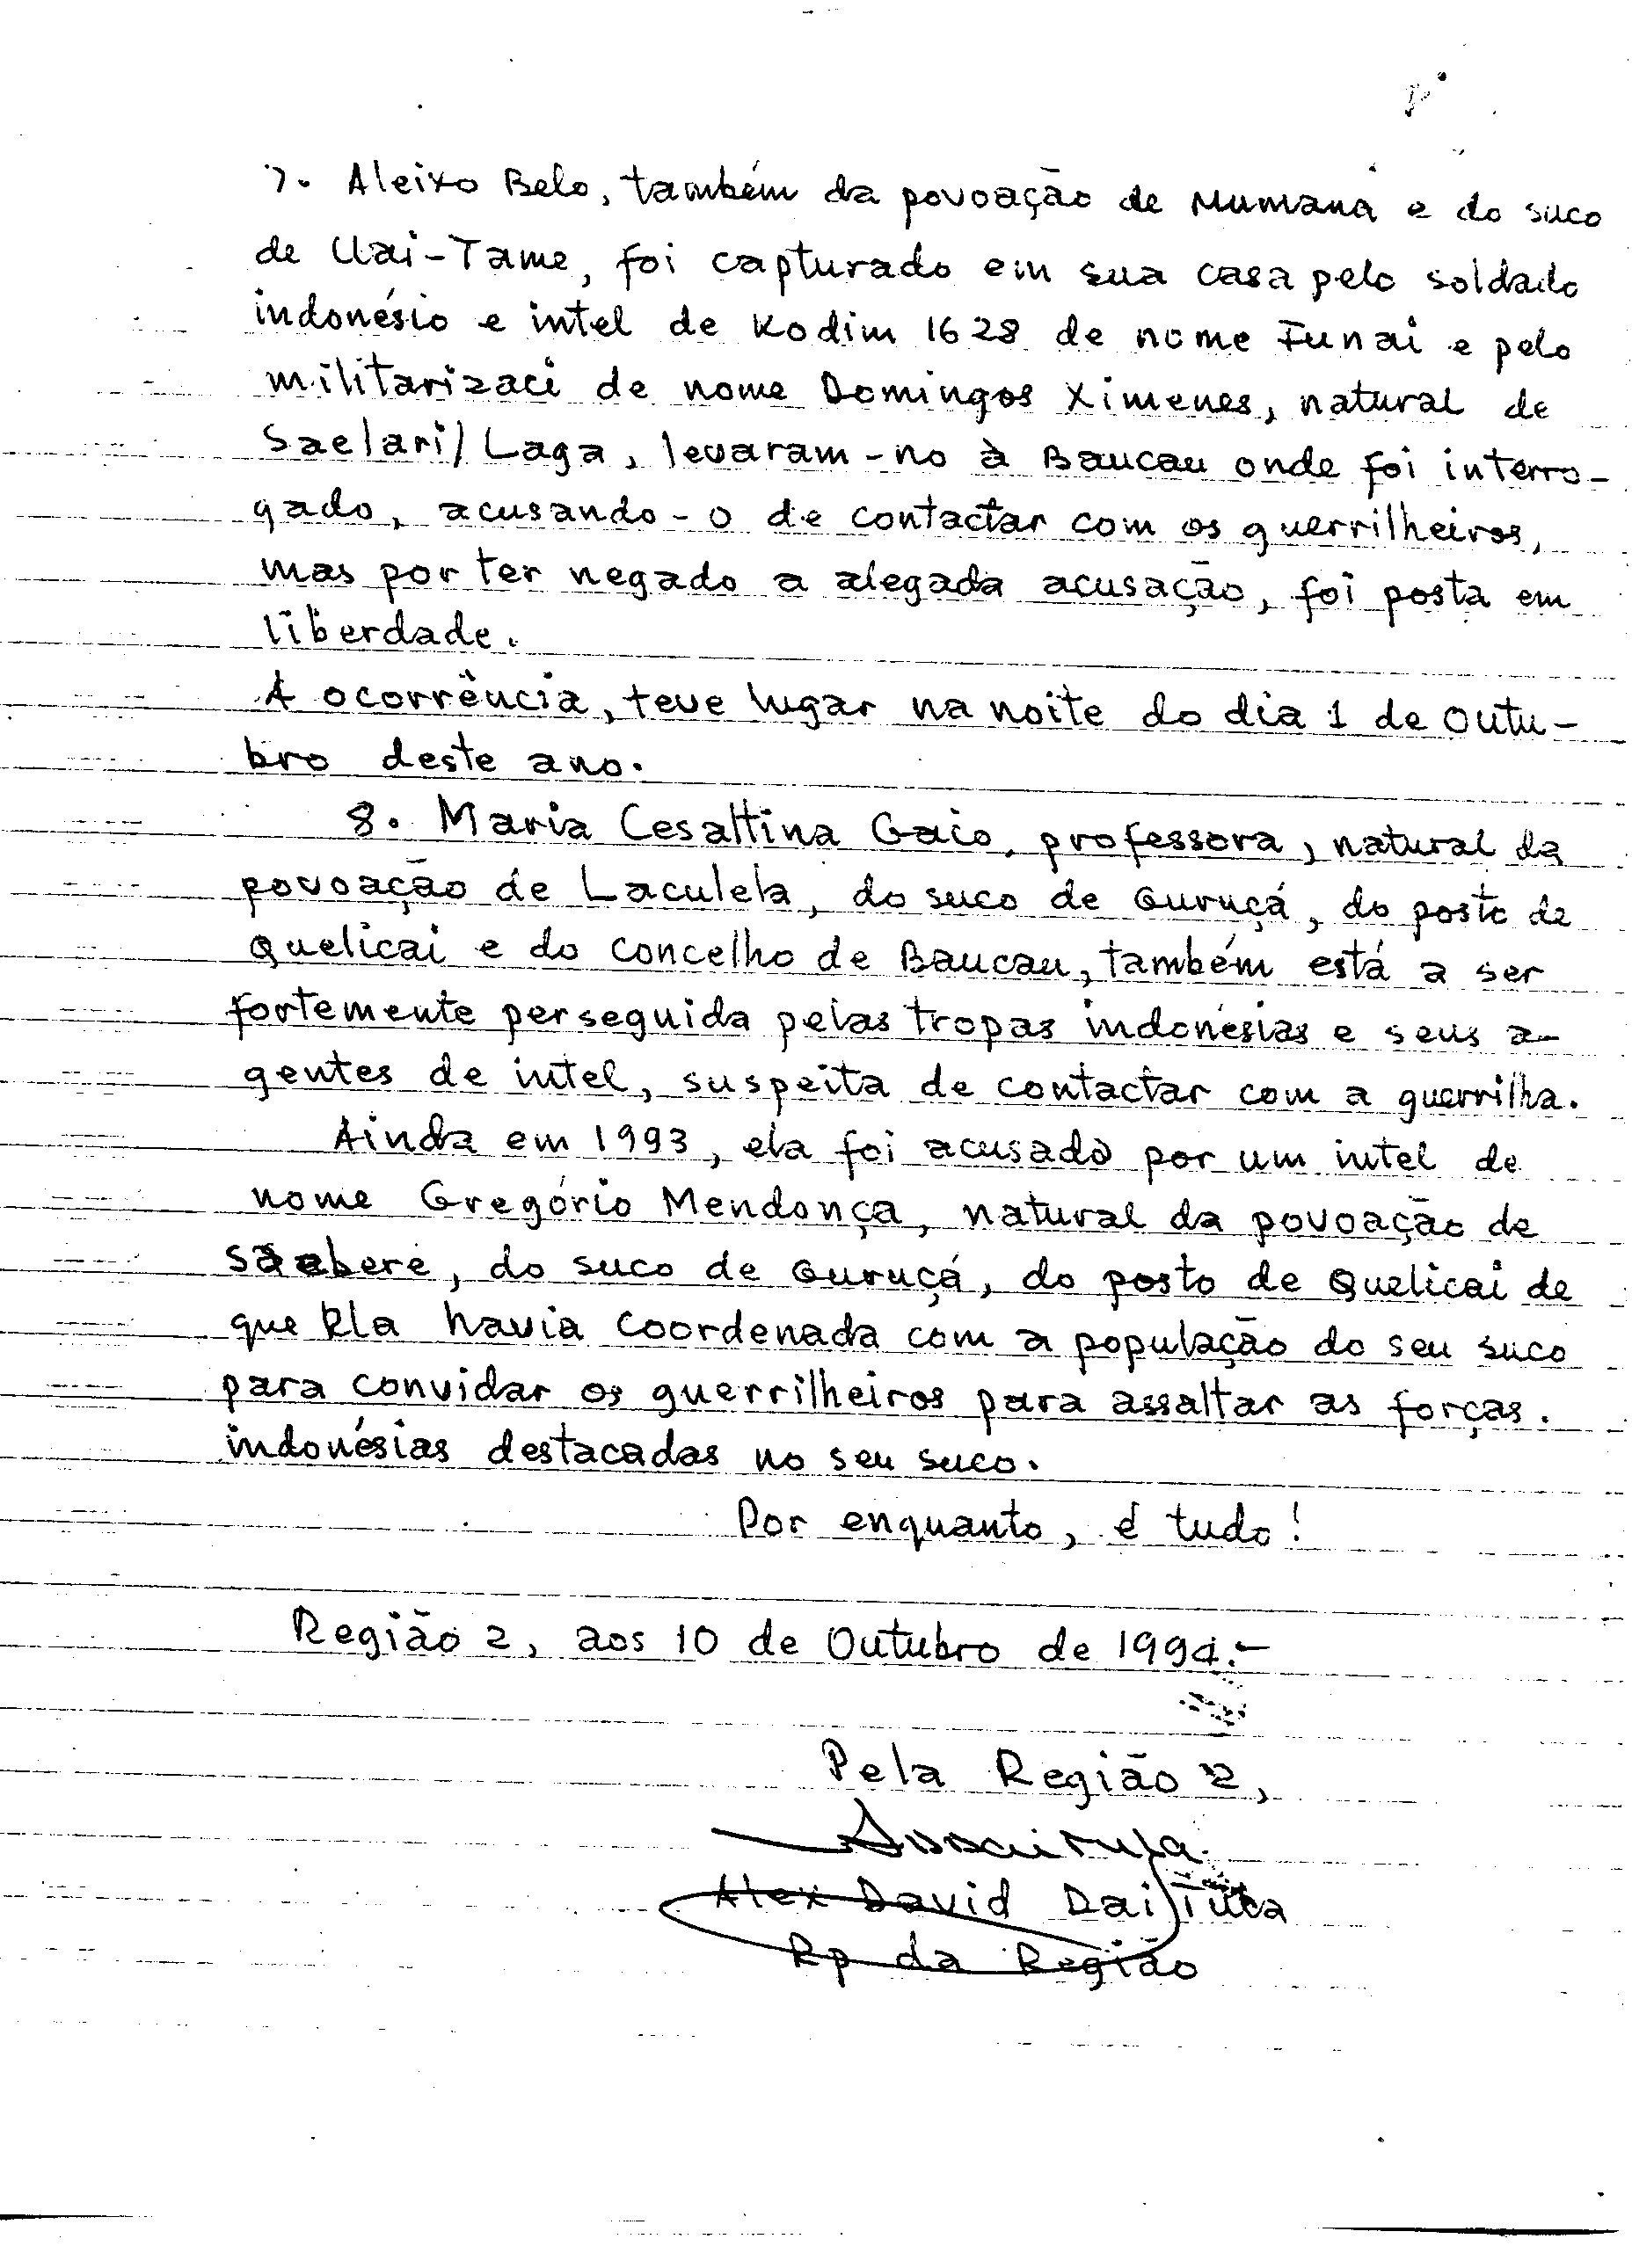 7. Aleixo Belo, também da povoação de Mumana e do suco
de Uai-Tame, foi capturado em sua casa pelo soldado
indonésio e intel de Kodim 1628 de nome Funai e pelo
militarizaci de nome Domingos Ximenes, natural de
Saelari/Laga, levaram-no à Baucau onde foi interro-
gado, acusando-o de contactar com os guerrilheiros,
mas por ter negado a alegada acusação, foi posta em
liberdade.
A ocorrência, teve lugar na noite do dia 1 de Outu-
bro deste ano.
8. Maria Cesaltina Gaio, professora, natural da
povoação de Laculela, do suco de Guruçá, do posto de
Quelicai e do concelho de Baucau, também está a ser
fortemente perseguida pelas tropas indonésias e seus a-
gentes de intel, suspeita de contactar com a guerrilha.
Ainda em 1993, ela foi acusado por um intel de
nome Gregório Mendonça, natural da povoação de
Saebere, do suco de Guruçá, do posto de Quelicai de
que Ela havia coordenada com a população do seu suco
para convidar os guerrilheiros para assaltar as forças.
indonésias destacadas no seu suco.
Por enquanto, é tudo!
Região 2, aos 10 de Outubro de 1994.-
Pela Região 2,
Alex David Dai Tula
Rp da Região